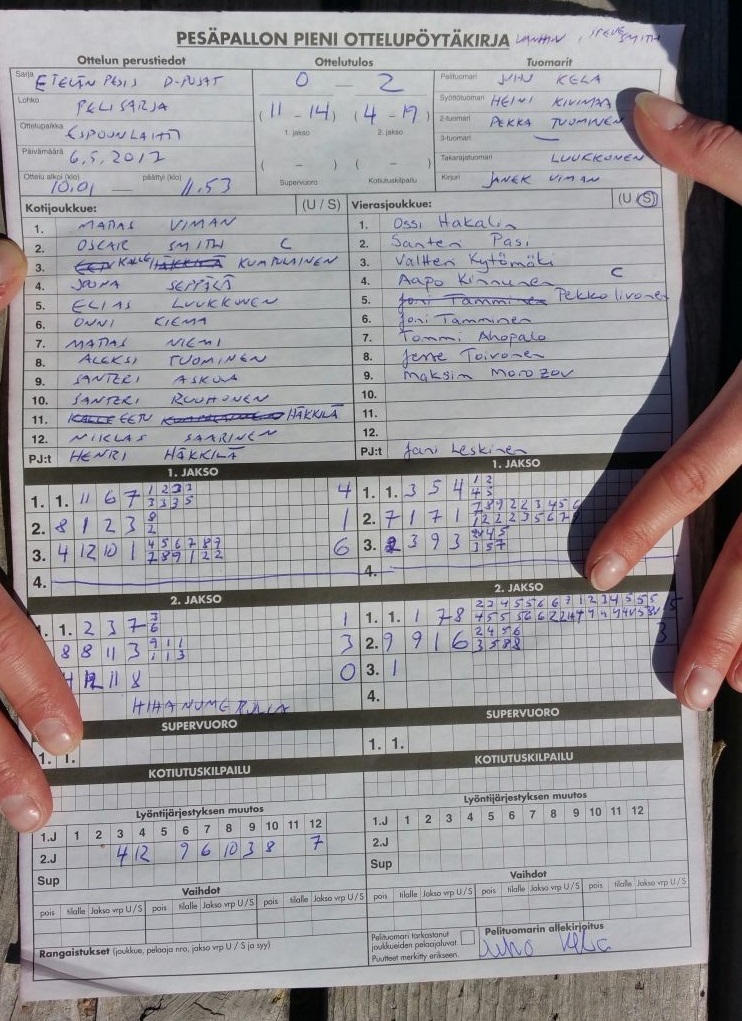 PESÄPALLON PIENI OTTELUPÖYTÄKIRJA
SMITH
Ottelun perustiedot
Sarja ETELÄN PESIS D-POJAT
Lohko PELISARJA
Ottelupaikka ESPOONLAHTI
Päivämäärä 6.5.2017
Ottelu alkoi (klo) 10.01 — päättyi (klo) 11.53
Ottelutulos
0 — 2
(11 - 14) (4 - 19)
1. jakso 2. jakso
( - ) ( - )
Supervuoro Kotiutuskilpailu
Tuomarit
Pelituomari JUHO KELA
Syöttötuomari HEINI KIVIMAA
2-tuomari PEKKA TUOMINEN
3-tuomari —
Takarajatuomari LUUKKONEN
Kirjuri JANEK VIMAN
Kotijoukkue: (U / S)
1. MATIAS VIMAN
2. OSCAR SMITH C
3. KALLE KUMPULAINEN
4. JOONA SEPPÄLÄ
5. ELIAS LUUKKONEN
6. ONNI KIEMA
7. MATIAS NIEMI
8. ALEKSI TUOMINEN
9. SANTERI
10. SANTERI RUUHONEN
11. EETU HÄKKILÄ
12. NIKLAS SAARINEN
PJ:t HENRI HÄKKILÄ
Vierasjoukkue: (U / S)
1. Ossi Hakalin
2. Santeri Pasi
3. Valtteri Kytömäki
4. Aapo Kinnunen C
5. Joni Tamminen Pekko Iivonen
6. Joni Tamminen
7. Tommi Ahopalo
8. Jerre Toivonen
9. Maksim Morozov
10.
11.
12.
PJ:t Jani Leskinen
1. JAKSO
1. 1. 11 6 7 4
2. 8 1 2 3 1
3. 4 12 10 1 4 5 6 7 8 9 6
7 8 9 1 2 2
4.
1. JAKSO
1. 1. 3 5 4 1 2
4 5
2. 7 1 7 1
3. 3 9 3
4.
2. JAKSO
1. 1. 2 3 7 1
8 8 11 3 9 1 1 3
1 1 3
11 8 0
HIHANUMEROILLA
2. JAKSO
1. 1. 1 7 8
2. 9 9 1 6 2 4 5 6 3
3 5 8 8
3. 1
4.
SUPERVUORO
1. 1.
SUPERVUORO
1. 1.
KOTIUTUSKILPAILU
KOTIUTUSKILPAILU
Lyöntijärjestyksen muutos
1.J 1 2 3 4 5 6 7 8 9 10 11 12
2.J 4 12 9 6 10 3 8 7
Sup
Lyöntijärjestyksen muutos
1.J 1 2 3 4 5 6 7 8 9 10 11 12
2.J
Sup
Vaihdot
pois tilalle Jakso vrp U / S pois tilalle Jakso vrp U / S pois tilalle Jakso vrp U / S
Vaihdot
pois tilalle Jakso vrp U / S pois tilalle Jakso vrp U / S pois tilalle Jakso vrp U / S
Rangaistukset (joukkue, pelaaja nro, jakso vrp U / S ja syy)
Pelituomari tarkastanut
joukkueiden pelaajaluvat.
Puutteet merkitty erikseen.
Pelituomarin allekirjoitus
Juho Kela